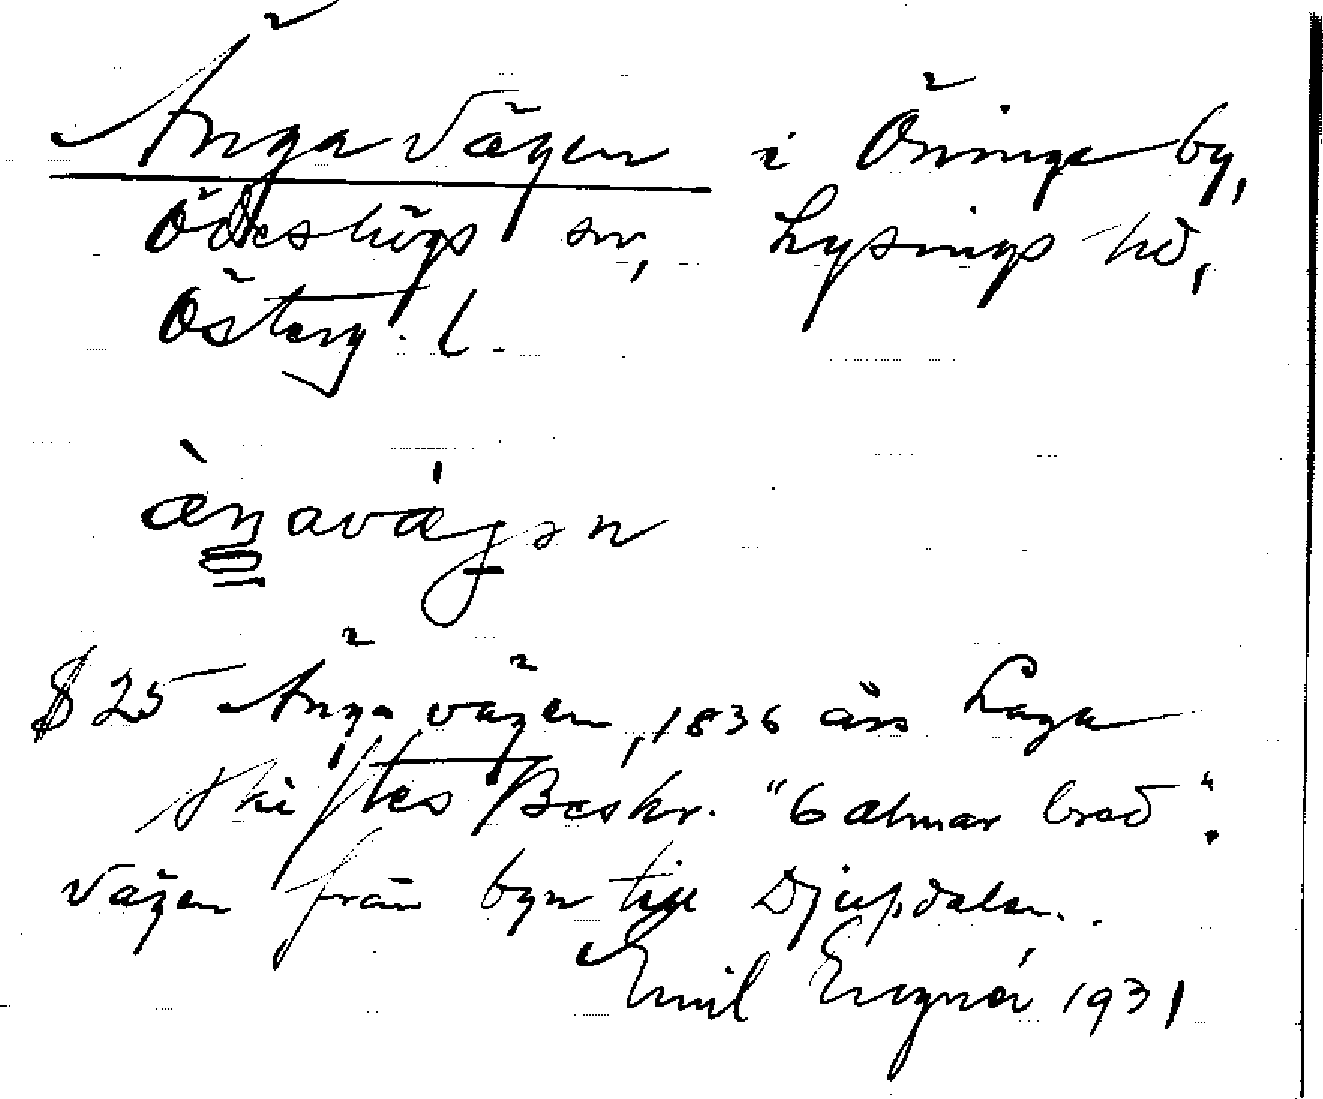 Änga vägen i Öninge by,
Ödeshögs sn, Lysings hd,
Österg. l.
ὰŋavágən
§ 25 Änga vägen, 1836 års Laga
skiftes Beskr. "6 alnar bred".
Vägen från byn till Djupdalen.
Emil Engnér 1931